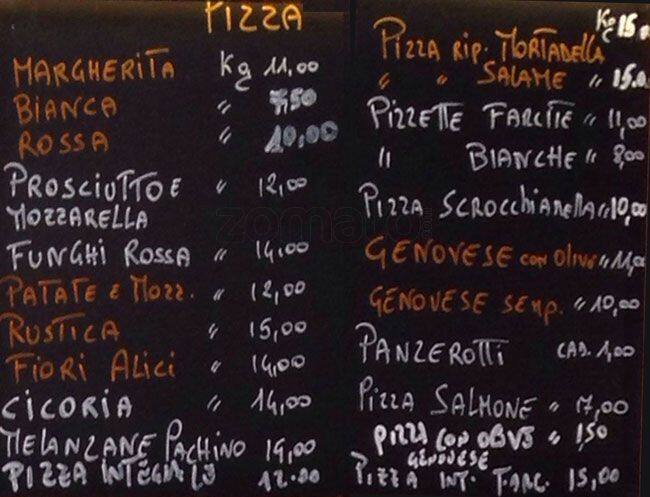 PIZZA
MARGHERITA Kg 11,00
BIANCA " 7,50
ROSSA " 10,00
PROSCIUTTO E " 12,00
MOZZARELLA
FUNGHI ROSSA " 14,00
PATATE E MOZZ. " 12,00
RUSTICA " 15,00
FIORI ALICI " 14,00
CICORIA " 14,00
MELANZANE PACHINO 14,00
PIZZA INTEGRALE 12.00
PIZZA RIP. MORTADELLA Kg 15.0
" " SALAME " 15.0
PIZZETTE FARCITE " 11,00
" BIANCHE " 8,00
PIZZA SCROCCHIARELLA " 10,00
GENOVESE con OLIVE " 11,00
GENOVESE SEMP. " 10,00
PANZEROTTI CAD. 1,00
PIZZA SALMONE " 17,00
PIZZA CON " 1,50
GENOVESE
PIZZA INT. FARC. 15,00
zomato